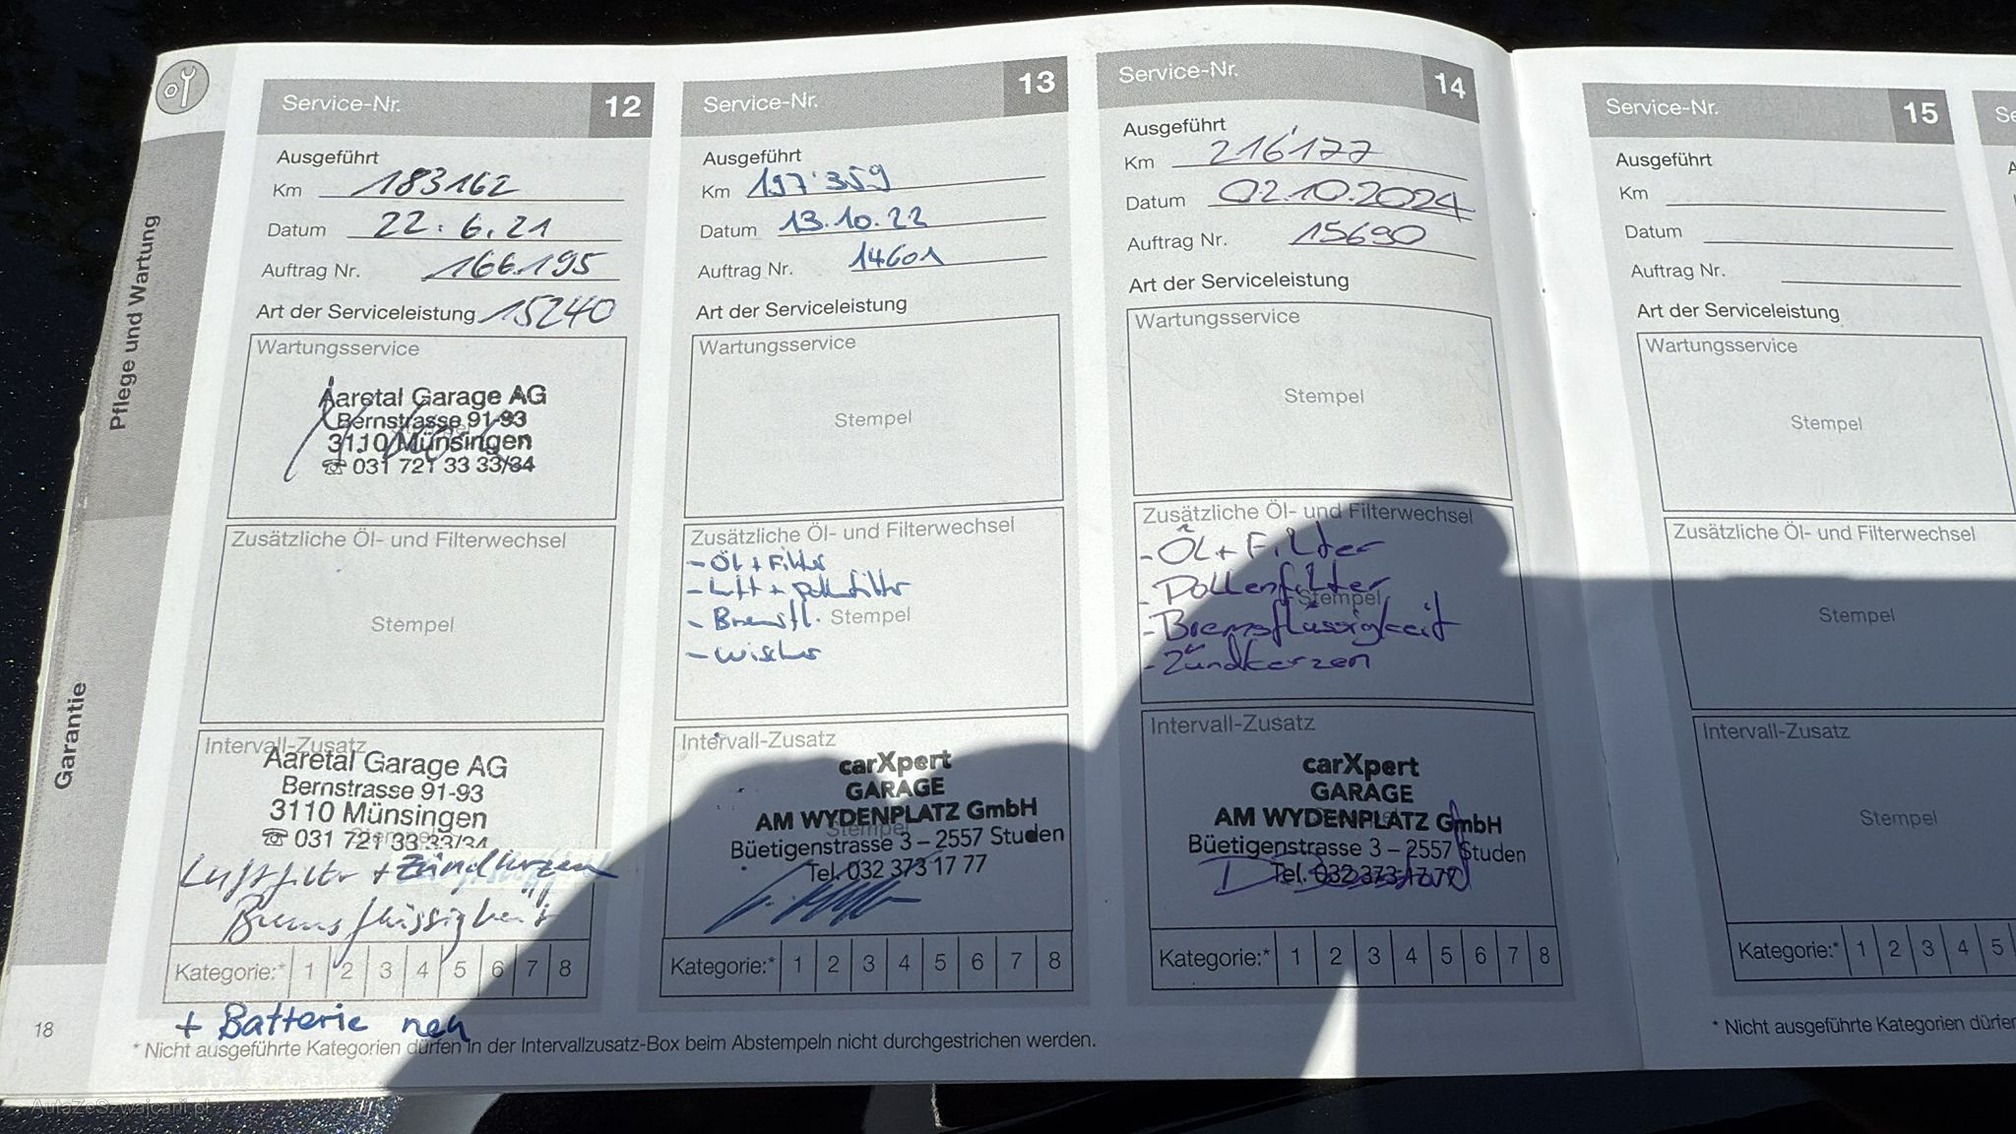 Pflege und Wartung
Garantie
Service-Nr. 12
Ausgeführt
Km 183162
Datum 22.6.21
Auftrag Nr. 166.195
Art der Serviceleistung 15240
Wartungsservice
Aaretal Garage AG
Bernstrasse 91-93
3110 Münsingen
☎ 031 721 33 33/34
Zusätzliche Öl- und Filterwechsel
Stempel
Intervall-Zusatz
Aaretal Garage AG
Bernstrasse 91-93
3110 Münsingen
☎ 031 721 33 33/34
Luftfilter + Zündkerzen
Bremsflüssigkeit
Kategorie:* 1 2 3 4 5 6 7 8
+ Batterie neu
Service-Nr. 13
Ausgeführt
Km 197'359
Datum 13.10.22
Auftrag Nr. 14601
Art der Serviceleistung
Wartungsservice
Stempel
Zusätzliche Öl- und Filterwechsel
- Öl + Filter
- Luft + Pollenfilter
- Bremsfl. Stempel
- Wischer
Intervall-Zusatz
carXpert
GARAGE
AM WYDENPLATZ GmbH
Stempel
Büetigenstrasse 3 – 2557 Studen
Tel. 032 373 17 77
Kategorie:* 1 2 3 4 5 6 7 8
Service-Nr. 14
Ausgeführt
Km 216'177
Datum 02.10.2024
Auftrag Nr. 15690
Art der Serviceleistung
Wartungsservice
Stempel
Zusätzliche Öl- und Filterwechsel
- Öl + Filter
- Pollenfilter
Stempel
- Bremsflüssigkeit
- Zündkerzen
Intervall-Zusatz
carXpert
GARAGE
AM WYDENPLATZ GmbH
Büetigenstrasse 3 – 2557 Studen
Tel. 032 373 17 77
Kategorie:* 1 2 3 4 5 6 7 8
18
* Nicht ausgeführte Kategorien dürfen in der Intervallzusatz-Box beim Abstempeln nicht durchgestrichen werden.
Service-Nr. 15
Ausgeführt
Km
Datum
Auftrag Nr.
Art der Serviceleistung
Wartungsservice
Stempel
Zusätzliche Öl- und Filterwechsel
Stempel
Intervall-Zusatz
Stempel
Kategorie:* 1 2 3 4 5
* Nicht ausgeführte Kategorien dürfen
Se
A
AutaZeSzwajcarii.pl